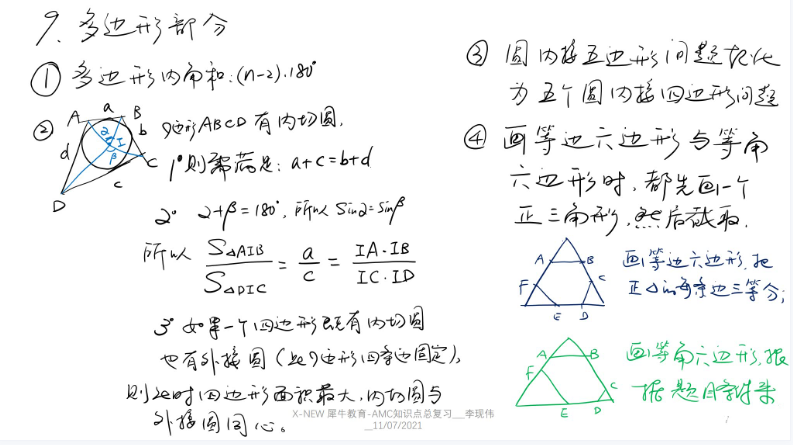 9、多边形部分
① 多边形内角和:(n-2)·180°
② A a B b C c D d α I β
四边形ABCD有内切圆,
1° 则需满足: a+c=b+d
2° α+β=180°, 所以 Sinα=Sinβ
所以 S△AIB / S△DIC = a/c = IA·IB / IC·ID
3° 如果一个四边形既有内切圆
也有外接圆(此四边形四条边固定),
则此时四边形面积最大,内切圆与
外接圆同心。
③ 圆内接五边形问题转化
为五个圆内接四边形问题
④ 画等边六边形与等角
六边形时,都先画一个
正三角形,然后截取.
A B C D E F
画等边六边形,把
正△的每条边三等分;
A B C D E F
画等角六边形,根
据题目条件来
X-NEW 犀牛教育-AMC知识点总复习__李现伟
__11/07/2021